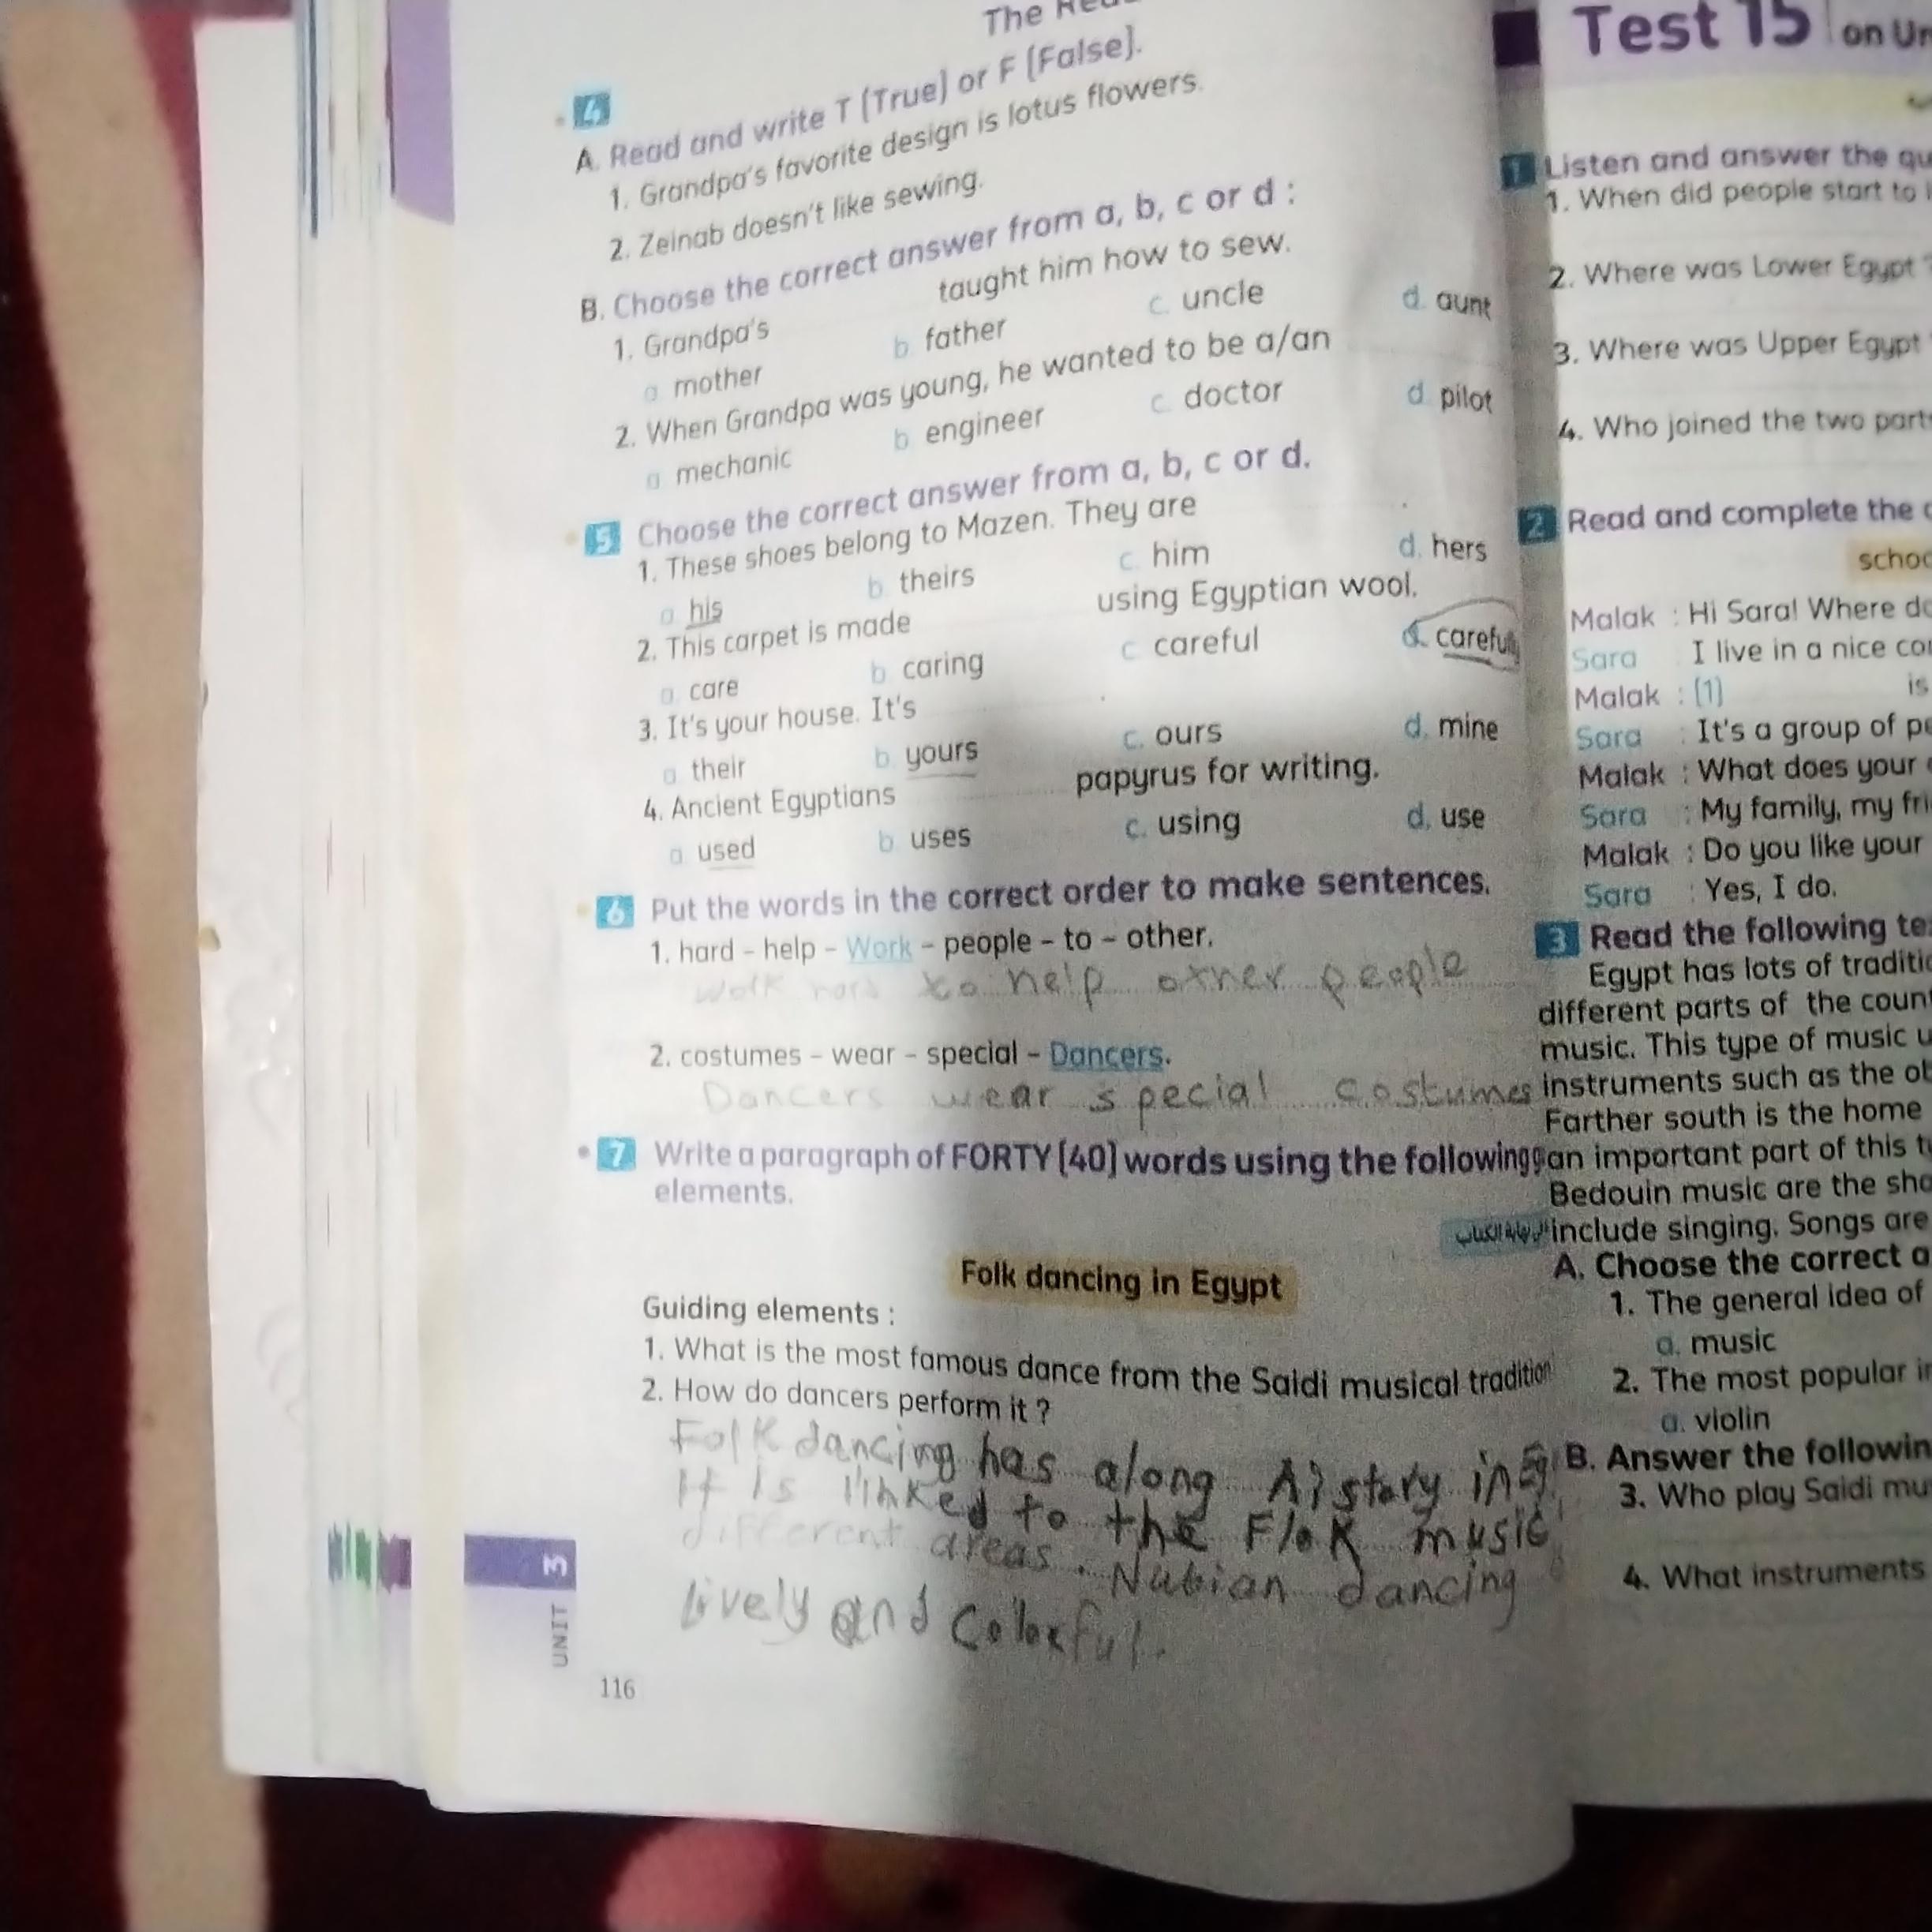 The
4
A. Read and write T (True) or F (False).
1. Grandpa's favorite design is lotus flowers.
2. Zeinab doesn't like sewing.
B. Choose the correct answer from a, b, c or d :
1. Grandpa's taught him how to sew.
a. mother b. father c. uncle d. aunt
2. When Grandpa was young, he wanted to be a/an
a. mechanic b. engineer c. doctor d. pilot
5 Choose the correct answer from a, b, c or d.
1. These shoes belong to Mazen. They are
a. his b. theirs c. him d. hers
2. This carpet is made using Egyptian wool.
a. care b. caring c. careful d. carefully
3. It's your house. It's
a. their b. yours c. ours d. mine
4. Ancient Egyptians papyrus for writing.
a. used b. uses c. using d. use
6 Put the words in the correct order to make sentences.
1. hard – help – Work – people – to – other.
Work hard to help other people
2. costumes – wear – special – Dancers.
Dancers wear special costumes
7 Write a paragraph of FORTY (40) words using the following
elements.
Folk dancing in Egypt
Guiding elements :
1. What is the most famous dance from the Saidi musical tradition
2. How do dancers perform it ?
Folk dancing has along history in
It is linked to the Flok music
different areas. Nubian dancing
lively and Colorful.
UNIT 3
116
Test 15 on
1 Listen and answer the
1. When did people start to
2. Where was Lower Egypt
3. Where was Upper Egypt
4. Who joined the two
2 Read and complete the
Malak : Hi Sara! Where
Sara : I live in a nice
Malak : (1) is
Sara : It's a group of
Malak : What does your
Sara : My family, my
Malak : Do you like your
Sara : Yes, I do.
3 Read the following
Egypt has lots of
different parts of the
music. This type of music
instruments such as the
Farther south is the home
an important part of this
Bedouin music are the
include singing. Songs are
A. Choose the correct
1. The general idea of
a. music
2. The most popular
a. violin
B. Answer the
3. Who play Saidi
4. What instruments